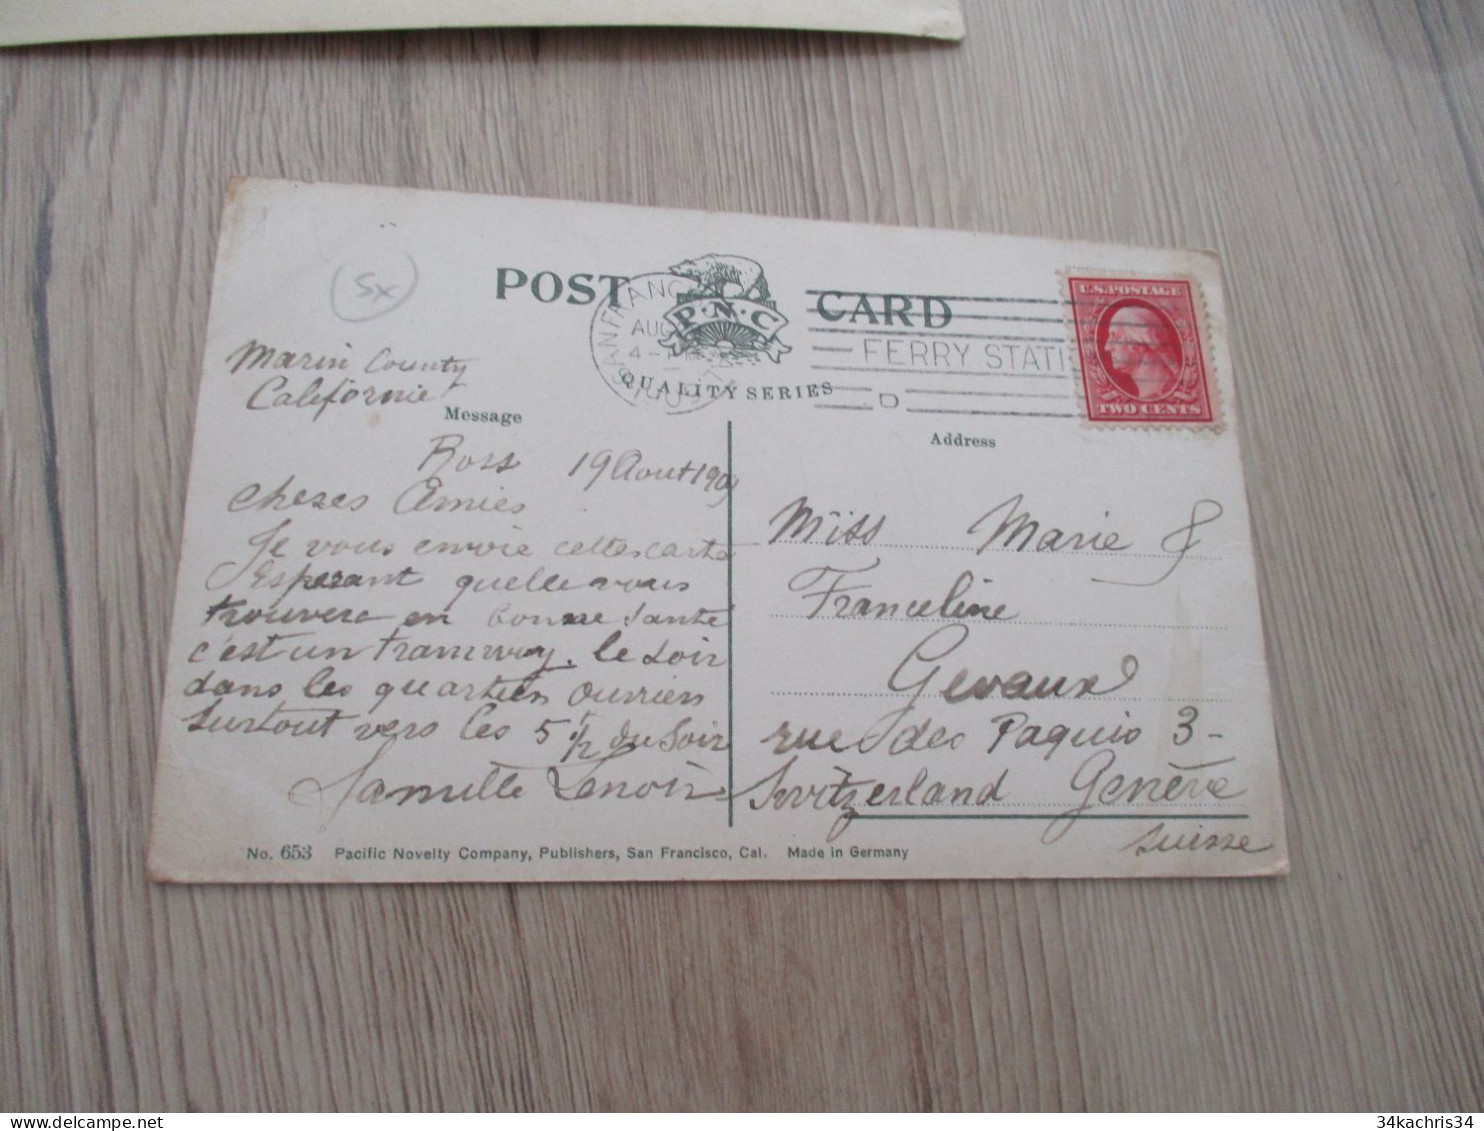 POST CARD
P·N·C
QUALITY SERIES
SAN FRANC
AUG
4-
1909
FERRY STATI
D
U.S. POSTAGE
TWO CENTS
Sx
Marin County
Californie
Message
Address
Ross 19 Aout 1909
cheres Amies
Je vous envoie cette carte
Esperant quelle vous
trouvera en bonne santé
c'est un tramway. le soir
dans les quartiers ouvriers
surtout vers les 5 1/2 du soir
Lenoir
Miss Marie &
Franceline
Gevaux
rue des Paquis 3-
Switzerland Genève
Suisse
No. 653 Pacific Novelty Company, Publishers, San Francisco, Cal. Made in Germany
34kachris34